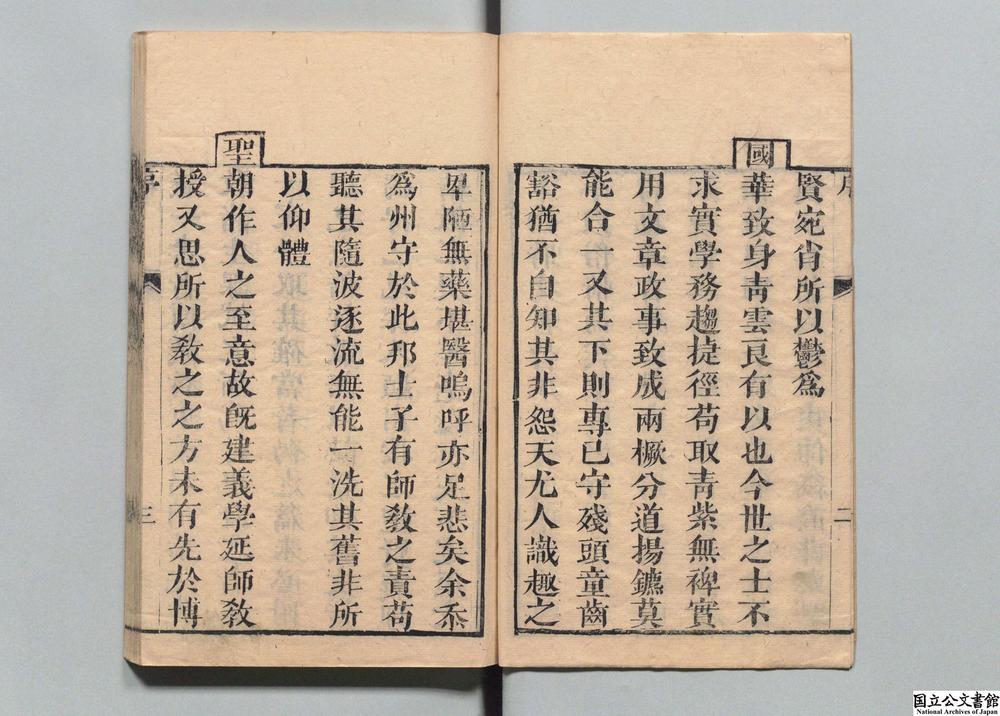 序 二
賢宛肖所以鬱爲
國華致身青雲良有以也今世之士不
求實學務趨捷徑苟取青紫無裨實
用文章政事致成兩橛分道揚鑣莫
能合一又其下則專已守殘頭童齒
豁猶不自知其非怨天尤人識趣之
卑陋無藥堪醫嗚呼亦足悲矣余忝
爲州守於此邦士子有師敎之責苟
聽其隨波逐流無能一洗其舊非所
以仰體
聖朝作人之至意故旣建義學延師敎
授又思所以敎之之方未有先於博
序 三
国立公文書館
National Archives of Japan